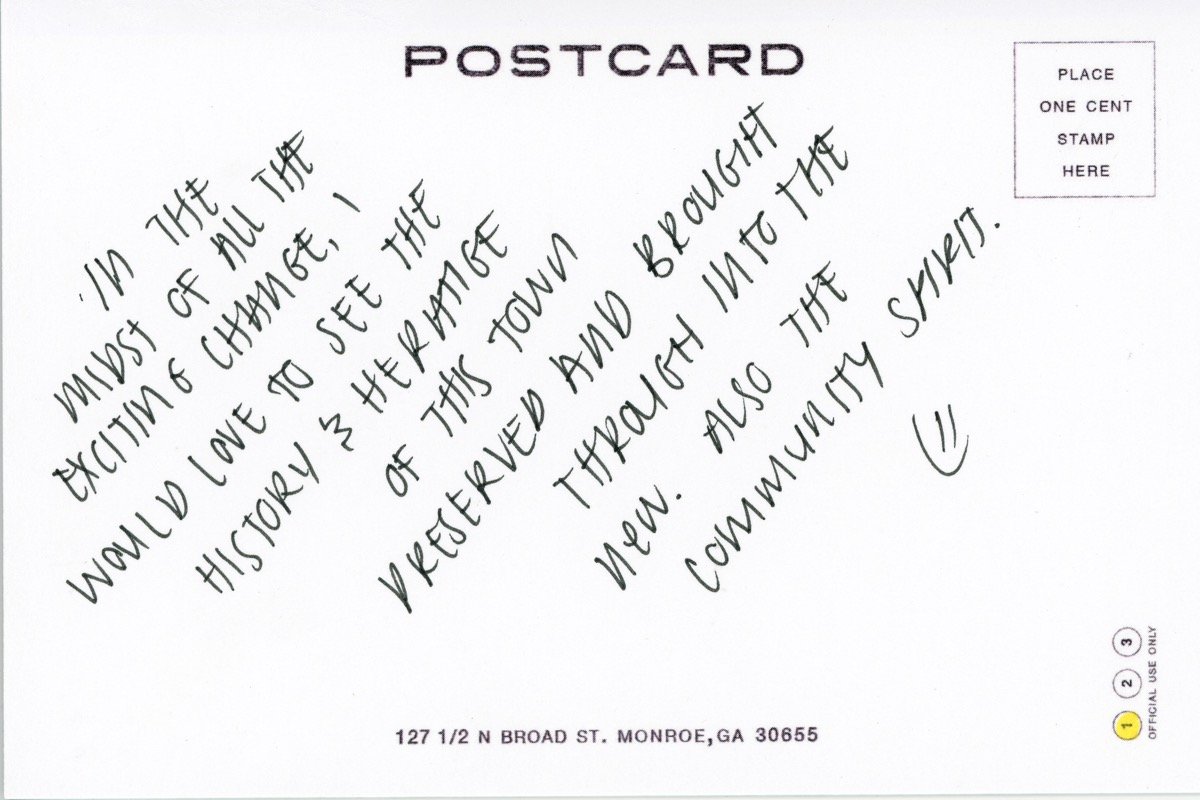 POSTCARD
PLACE
ONE CENT
STAMP
HERE
IN THE
MIDST OF ALL THE
EXCITING CHANGE, I
WOULD LOVE TO SEE THE
HISTORY & HERITAGE
OF THIS TOWN
PRESERVED AND BROUGHT
THROUGH INTO THE
NEW. ALSO THE
COMMUNITY SPIRIT.
127 1/2 N BROAD ST. MONROE,GA 30655
1 2 3
OFFICIAL USE ONLY